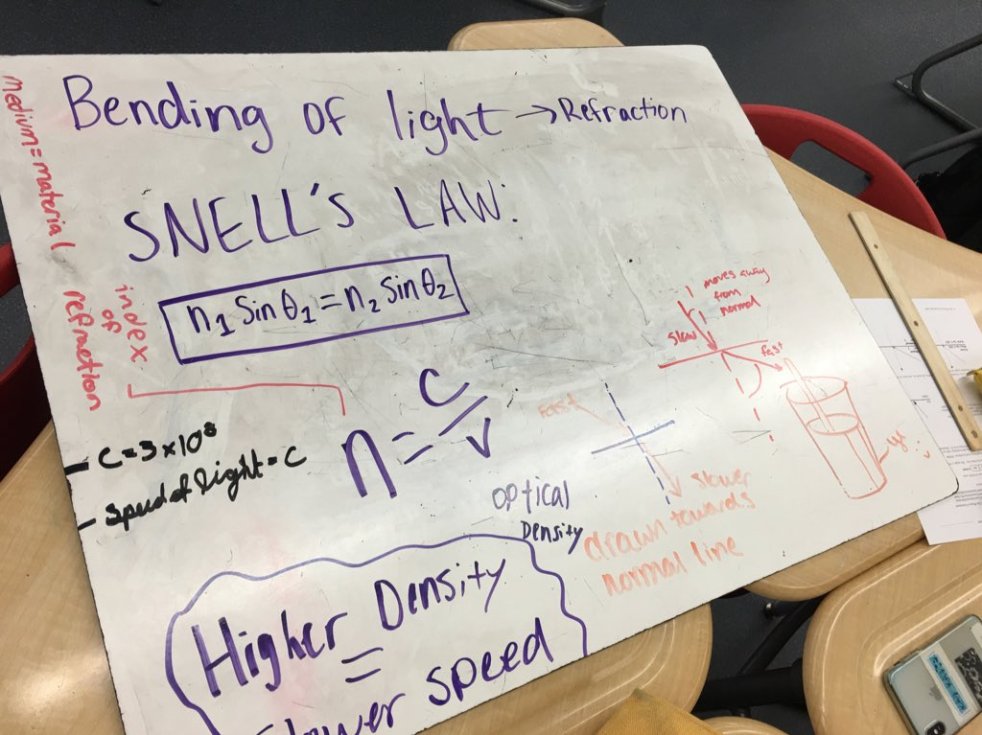 Bending of light → Refraction
SNELL'S LAW:
n₁ Sin θ₁ = n₂ Sin θ₂
medium = material
index
of
refraction
n = c/v
- C = 3 × 10⁸
- Speed of light = C
optical
Density
Higher Density
=
slower speed
moves away
from
normal
slow
fast
FAST
slower
drawn towards
normal line